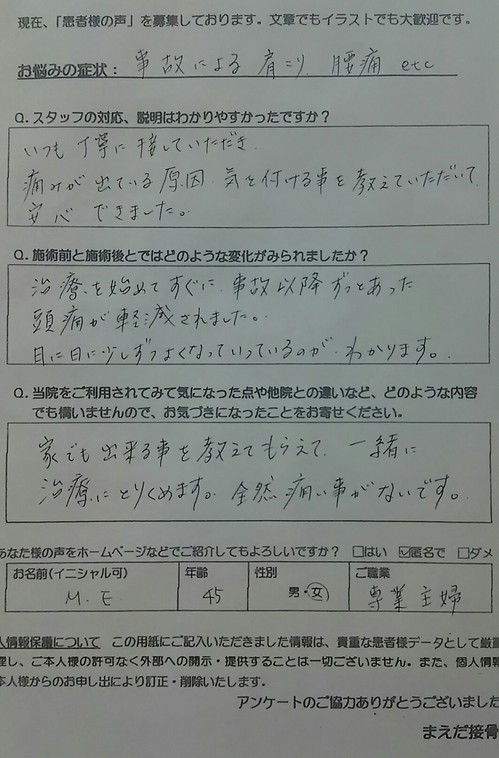 現在、「患者様の声」を募集しております。文章でもイラストでも大歓迎です。
お悩みの症状： 事故による肩こり 腰痛 etc
Q. スタッフの対応、説明はわかりやすかったですか？
いつも丁寧に接していただき
痛みが出ている原因 気を付ける事を教えていただいて
安心できました。
Q. 施術前と施術後とではどのような変化がみられましたか？
治療を始めてすぐに 事故以降ずっとあった
頭痛が軽減されました。
日に日に少しずつよくなっていっているのが わかります。
Q. 当院をご利用されてみて気になった点や他院との違いなど、どのような内容
でも構いませんので、お気づきになったことをお寄せください。
家でも出来る事を教えてもらえて 一緒に
治療にとりくめます。全然痛い事がないです。
あなた様の声をホームページなどでご紹介してもよろしいですか？ □はい ☑匿名で □ダメ
お名前(イニシャル可) 年齢 性別 ご職業
M.E 45 男・女 専業主婦
人情報保護について この用紙にご記入いただきました情報は、貴重な患者様データとして厳重
理し、ご本人様の許可なく外部への開示・提供することは一切ございません。また、個人情報
本人様からのお申し出により訂正・削除いたします。
アンケートのご協力ありがとうございました
まえだ接骨